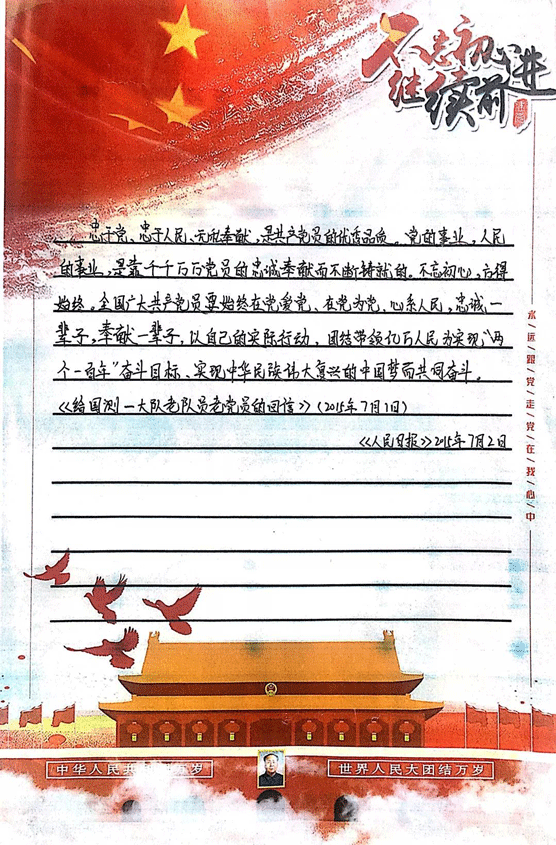 不忘初心
继续前进
忠于党、忠于人民、无私奉献,是共产党员的优秀品质。党的事业,人民
的事业,是靠千千万万党员的忠诚奉献而不断铸就的。不忘初心,方得
始终。全国广大共产党员要始终在党爱党、在党为党、心系人民,忠诚一
辈子,奉献一辈子,以自己的实际行动,团结带领亿万人民为实现“两
个一百年”奋斗目标、实现中华民族伟大复兴的中国梦而共同奋斗。
《给国测一大队老队员老党员的回信》(2015年7月1日)
《人民日报》2015年7月2日
永/远/跟/党/走/党/在/我/心/中
中华人民共 万岁
世界人民大团结万岁